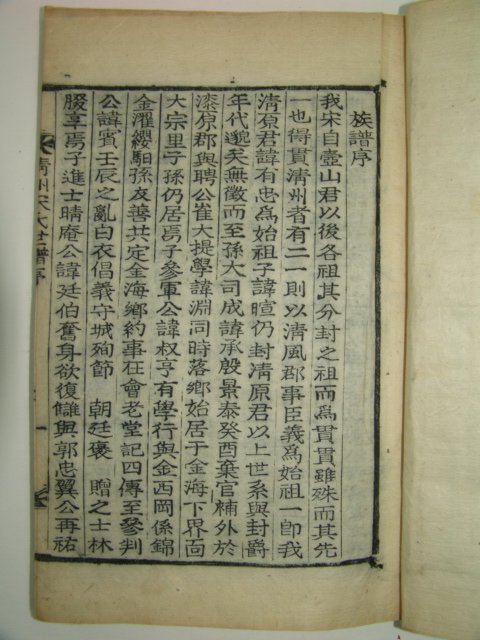 族譜序
我宋自壺山君以後各祖其分封之祖而爲貫貫雖殊而其先
一也得貫淸州者有二一則以淸風郡事臣義爲始祖一卽我
淸原君諱有忠爲始祖子諱暄仍封淸原君以上世系與封爵
年代邈矣無徵而至孫大司成諱承殷景泰癸酉棄官補外於
漆原郡與聘公崔大提學諱淵同時落鄕始居于金海下界面
大宗里子孫仍居焉子參軍公諱叔亨有學行與金西岡係錦
金濯纓馹孫友善共定金海鄕約事在會老堂記四傳至參判
公諱賓壬辰之亂白衣倡義守城殉節 朝廷褒 贈之士林
腏享焉子進士晴庵公諱廷伯奮身欲復讎與郭忠翼公再祐
淸州宋氏世譜序